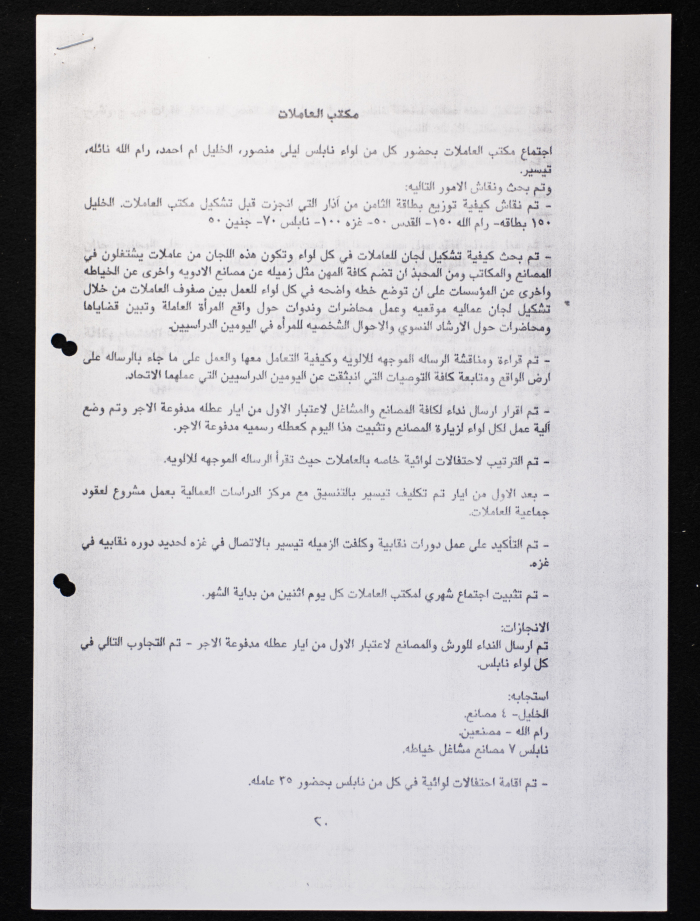 مكتب العاملات
اجتماع مكتب العاملات بحضور كل من لواء نابلس ليلى منصور، الخليل ام احمد، رام الله نائله،
تيسير.
وتم بحث ونقاش الامور التاليه:
- تم نقاش كيفية توزيع بطاقة الثامن من آذار التي انجزت قبل تشكيل مكتب العاملات. الخليل
١٥٠ بطاقه- رام الله ١٥٠- القدس ٥٠- غزه ١٠٠- نابلس ٧٠- جنين ٥٠
- تم بحث كيفية تشكيل لجان للعاملات في كل لواء وتكون هذه اللجان من عاملات يشتغلون في
المصانع والمكاتب ومن المحبذ ان تضم كافة المهن مثل زميله عن مصانع الادويه واخرى عن الخياطه
واخرى عن المؤسسات على ان توضع خطه واضحه في كل لواء للعمل بين صفوف العاملات من خلال
تشكيل لجان عماليه موقعيه وعمل محاضرات وندوات حول واقع المرأة العاملة وتبين قضاياها
ومحاضرات حول الارشاد النسوي والاحوال الشخصيه للمرأه في اليومين الدراسيين.
- تم قراءة ومناقشة الرساله الموجهه للالويه وكيفية التعامل معها والعمل على ما جاء بالرساله على
ارض الواقع ومتابعة كافة التوصيات التي انبثقت عن اليومين الدراسيين التي عملهما الاتحاد.
- تم اقرار ارسال نداء لكافة المصانع والمشاغل لاعتبار الاول من ايار عطله مدفوعة الاجر وتم وضع
آلية عمل لكل لواء لزيارة المصانع وتثبيت هذا اليوم كعطله رسميه مدفوعة الاجر.
- تم الترتيب لاحتفالات لوائية خاصه بالعاملات حيث تقرأ الرساله الموجهه للالويه.
- بعد الاول من ايار تم تكليف تيسير بالتنسيق مع مركز الدراسات العمالية بعمل مشروع لعقود
جماعية العاملات.
- تم التأكيد على عمل دورات نقابية وكلفت الزميله تيسير بالاتصال في غزه لحديد دوره نقابيه في
غزه.
- تم تثبيت اجتماع شهري لمكتب العاملات كل يوم اثنين من بداية الشهر.
الانجازات:
تم ارسال النداء للورش والمصانع لاعتبار الاول من ايار عطله مدفوعة الاجر - تم التجاوب التالي في
كل لواء نابلس.
استجابه:
الخليل- ٤ مصانع.
رام الله - مصنعين.
نابلس ٧ مصانع مشاغل خياطه.
- تم اقامة احتفالات لوائية في كل من نابلس بحضور ٣٥ عامله.
٢٠